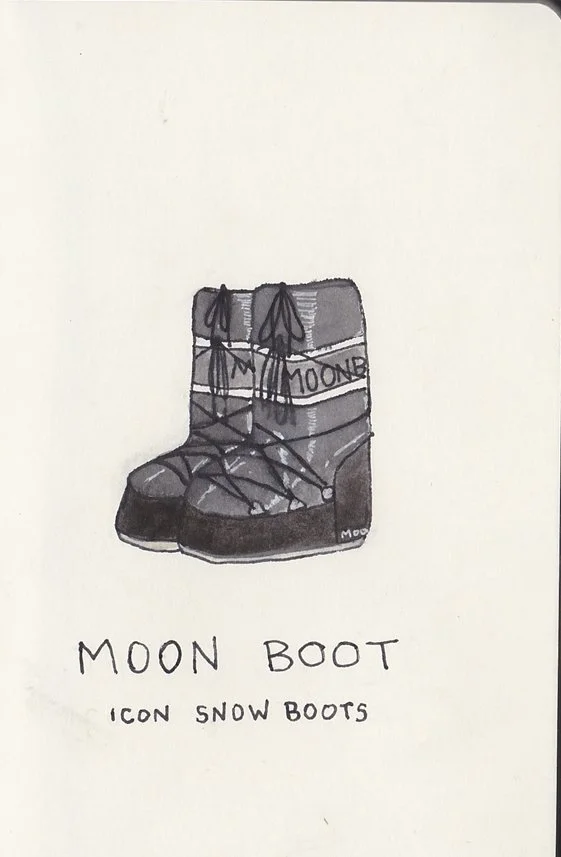 M
MOONB
MOO
MOON BOOT
ICON SNOW BOOTS